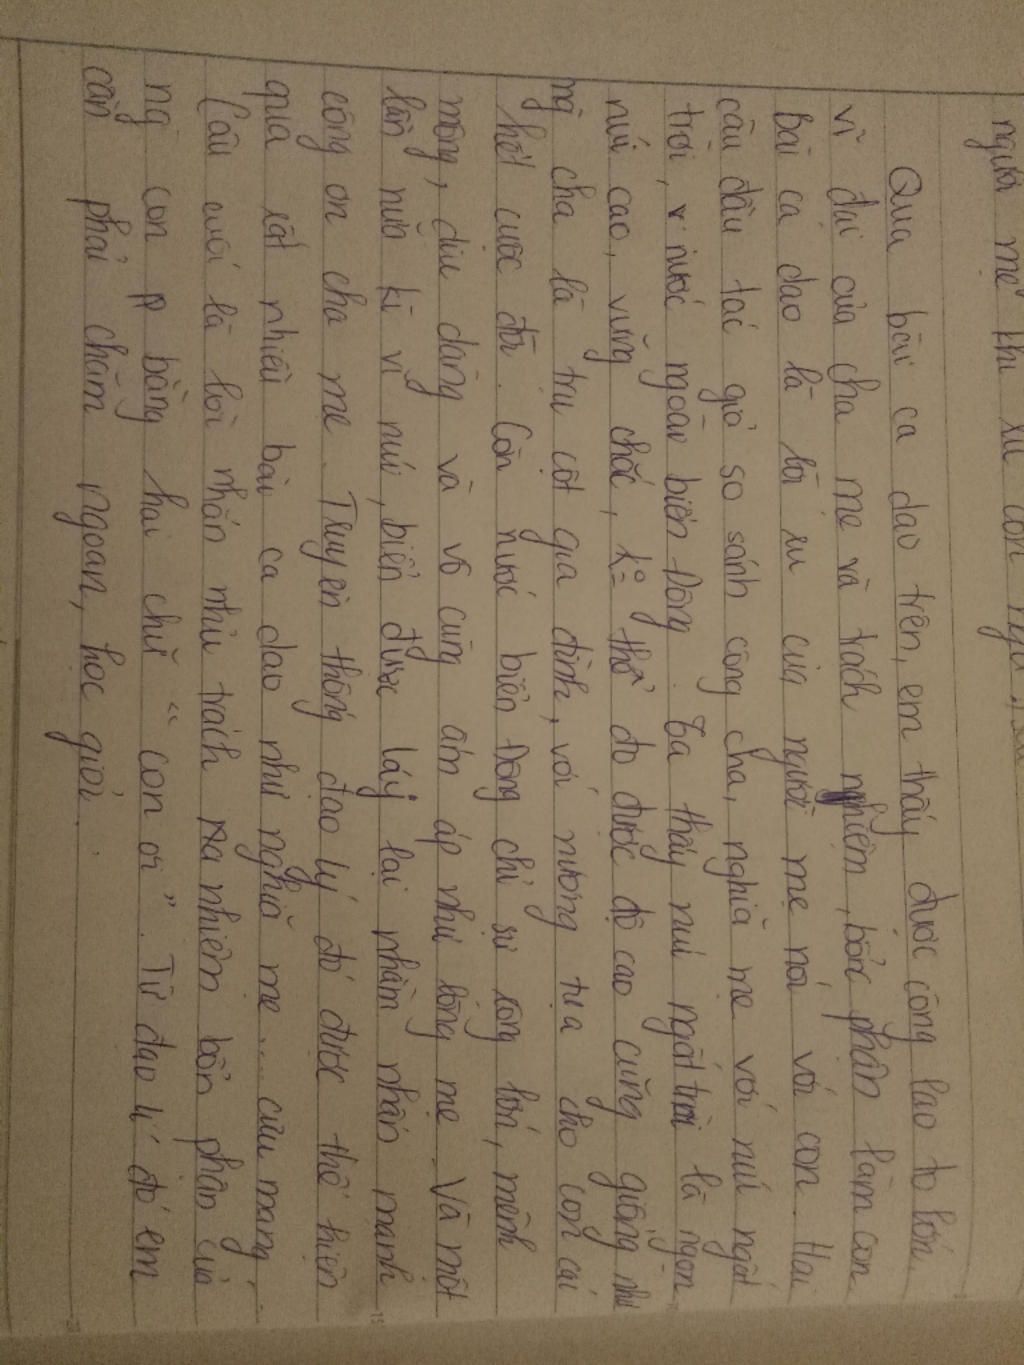 người mẹ khi ru con ngủ
Qua bài ca dao trên, em thấy được công lao to lớn
vĩ đại của cha mẹ và trách nghiệm, bổn phận làm con
Bài ca dao là lời ru của người mẹ nói với con. Hai
câu đầu tác giả so sánh công cha, nghĩa mẹ với núi ngất
trời, nước ngoài biển Đông. Ta thấy núi ngất trời là ngọn
núi cao, vững chắc, ko thể đo được độ cao cũng giống như
ng cha là trụ cột gia đình, với nương tựa cho con cái
hết cuộc đời. Còn nước biển Đông chỉ sự rộng lớn, mênh
mông, dịu dàng và vô cùng ấm áp như lòng mẹ. Và một
lần nữa hình núi, biển được láy lại phần nhấn mạnh
công ơn cha mẹ. Truyền thống đạo lý đó được thể hiện
qua rất nhiều bài ca dao như nghĩa mẹ... cưu mang.
Câu cuối là lời nhắn nhủ trách nhiệm bổn phận của
ng con bằng hai chữ "con ơi". Từ đạo lí đó em
cần phải chăm ngoan, học giỏi.